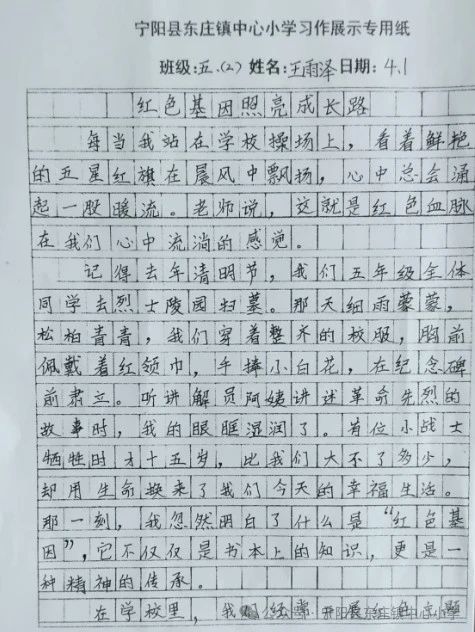 宁阳县东庄镇中心小学习作展示专用纸
班级:五.(2) 姓名:王雨泽 日期:4.1
红色基因照亮成长路
每当我站在学校操场上,看着鲜艳
的五星红旗在晨风中飘扬,心中总会涌
起一股暖流。老师说,这就是红色血脉
在我们心中流淌的感觉。
记得去年清明节,我们五年级全体
同学去烈士陵园扫墓。那天细雨蒙蒙,
松柏青青,我们穿着整齐的校服,胸前
佩戴着红领巾,手捧小白花,在纪念碑
前肃立。听讲解员阿姨讲述革命先烈的
故事时,我的眼眶湿润了。有位小战士
牺牲时才十五岁,比我们大不了多少,
却用生命换来了我们今天的幸福生活。
那一刻,我忽然明白了什么是“红色基
因”,它不仅仅是书本上的知识,更是一
种精神的传承。
在学校里,我们经常开展红色主题
宁阳东庄镇中心小学